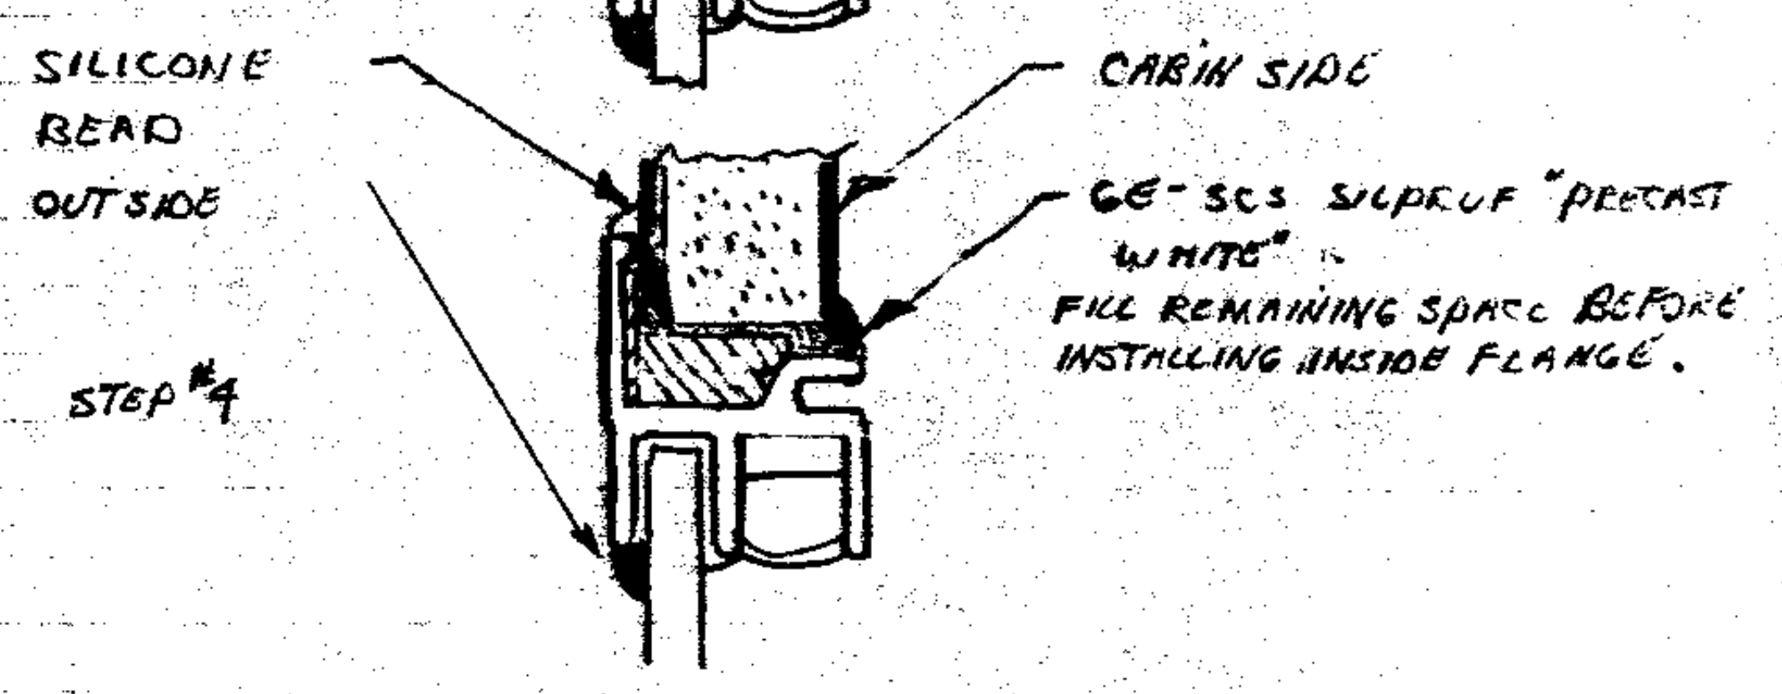 SILICONE
BEAD
OUTSIDE
STEP #4
CABIN SIDE
GE-SCS SILPRUF "PRECAST
WHITE"
FILL REMAINING SPACE BEFORE
INSTALLING INSIDE FLANGE.